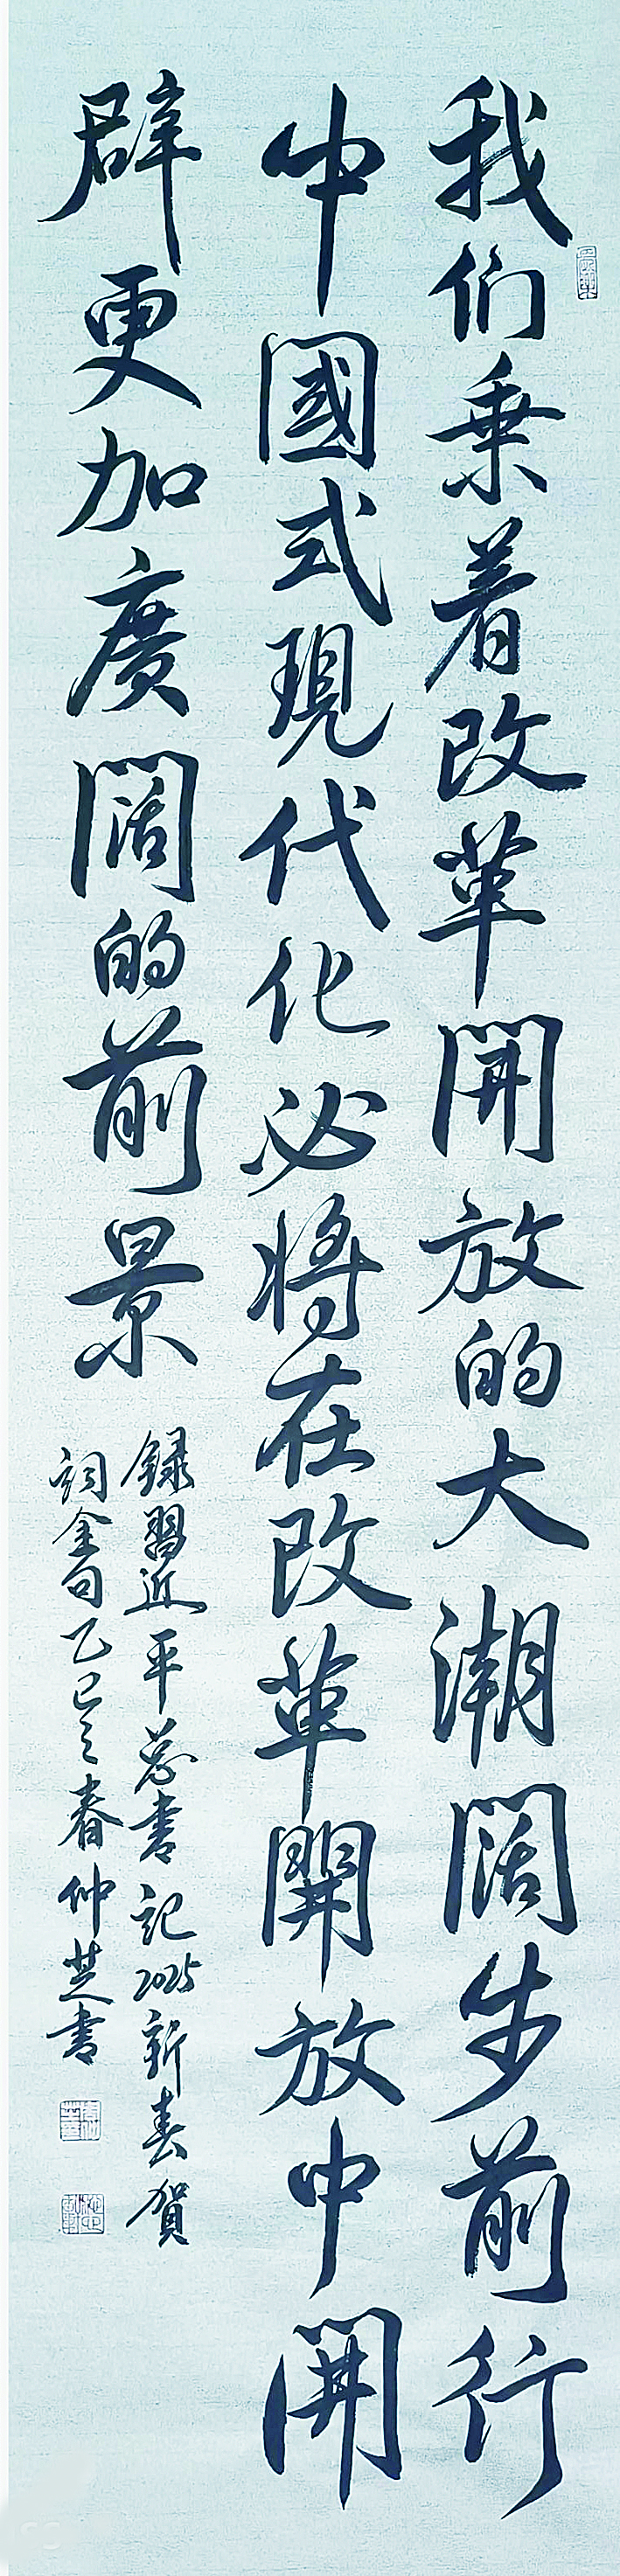 我们乘着改革開放的大潮阔步前行
中國式現代化必將在改革開放中開
辟更加廣阔的前景
録習近平总書記2025新春賀
詞金句乙巳之春仲芝書